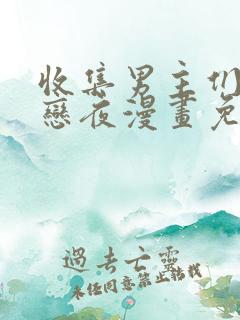 收集男主们
戀夜漫畫免
過去亡靈
未经同意禁止转载